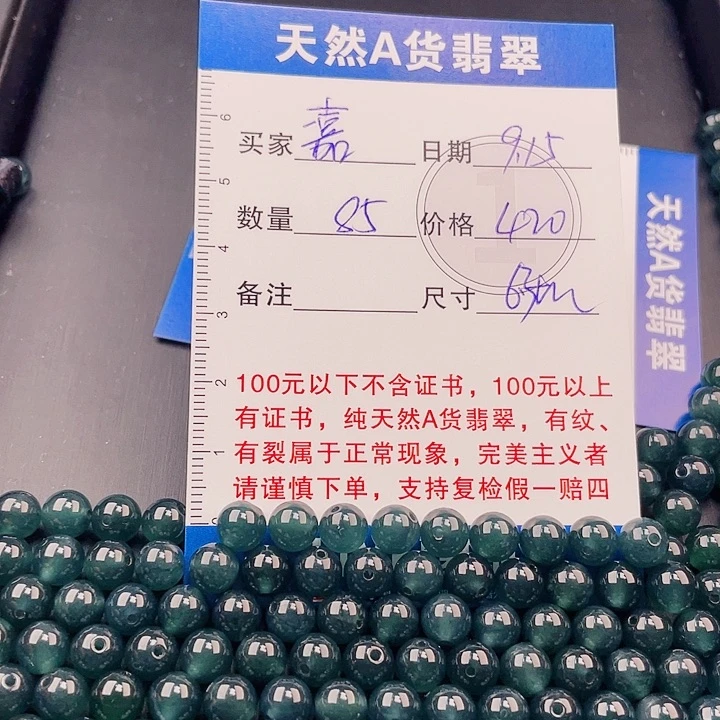 天然A货翡翠
买家 嘉 日期 9.15
数量 85 价格 420
备注 尺寸
100元以下不含证书，100元以上
有证书，纯天然A货翡翠，有纹、
有裂属于正常现象，完美主义者
请谨慎下单，支持复检假一赔四
6
5
4
3
2
1
0
天然A货翡翠